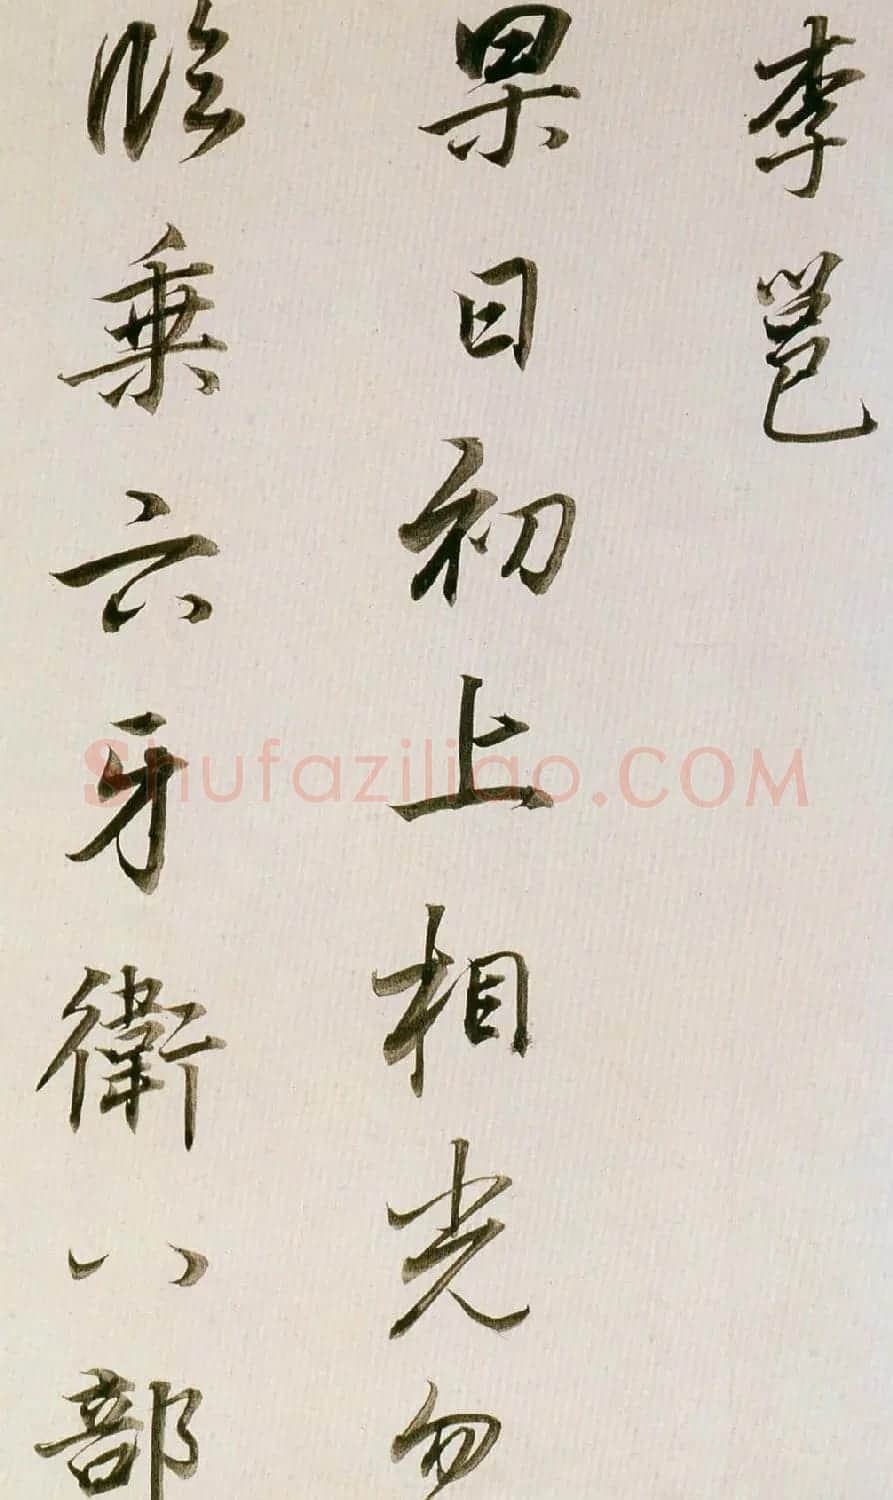 李邕
杲日初上相光勿
臨乘六牙衛八部
Shufaziliao.COM